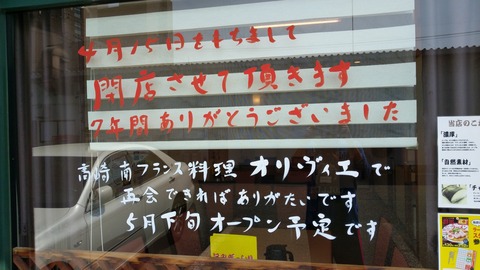 4月15日をもちまして
閉店させて頂きます
7年間ありがとうございました
高崎 南フランス料理 オリ・ヴィエで
再会できればありがたいです
5月下旬 オープン予定です
当店のこ
「濃厚」
「自然素材」
「チ